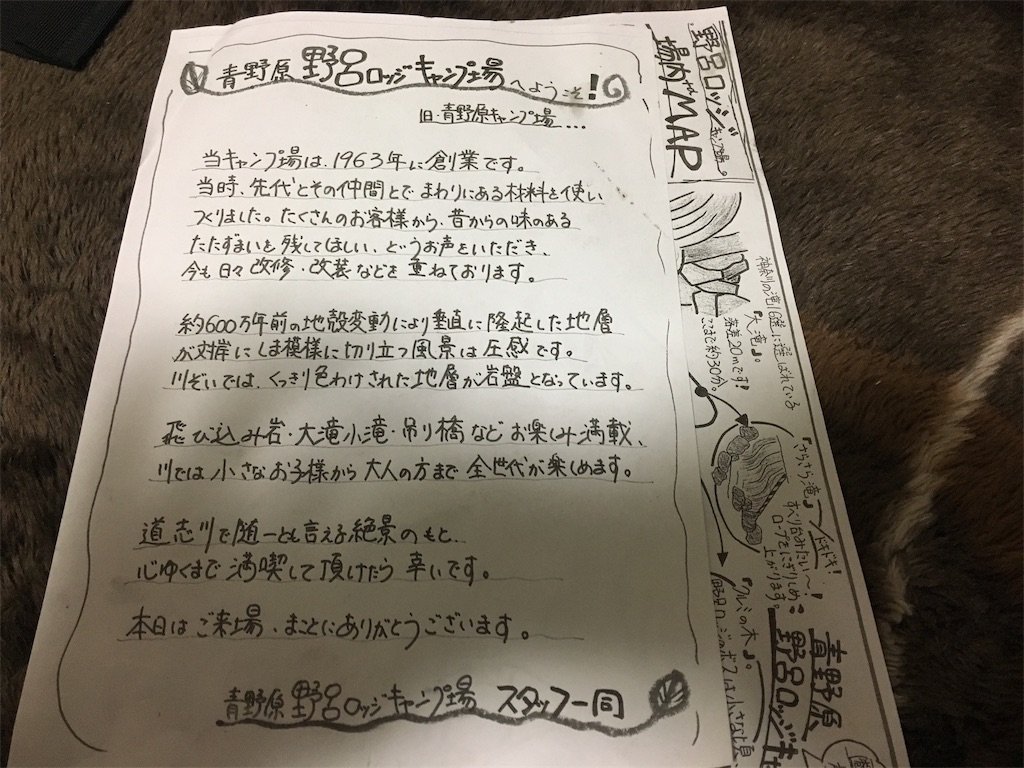 青野原 野呂ロッジキャンプ場へようこそ!
旧・青野原キャンプ場...
当キャンプ場は、1963年に創業です。
当時、先代とその仲間とで まわりにある材料を使い
つくりました。たくさんのお客様から、昔からの味のある
たたずまいを残してほしい、というお声をいただき、
今も日々 改修・改装などを 重ねております。
約600万年前の地殻変動により垂直に隆起した地層
が対岸にしま模様に切り立つ風景は圧感です。
川ぞいでは、くっきり色わけされた地層が岩盤となっています。
飛び込み岩・大滝小滝・吊り橋など お楽しみ満載、
川では 小さなお子様から 大人の方まで 全世代が楽しめます。
道志川で随一と言える絶景のもと、
心ゆくまで 満喫して頂けたら 幸いです。
本日は ご来場、まことにありがとうございます。
青野原 野呂ロッジキャンプ場 スタッフ一同
野呂ロッジキャンプ場。
場内MAP
神奈川の滝10選に選ばれている
『大滝』。
落差20mです!
ここまで約30分。
『さらさら滝』
ドキドキ!
ロープをにぎりしめ
上がります。
『クルミの木』。
青野原
野呂ロッジキ